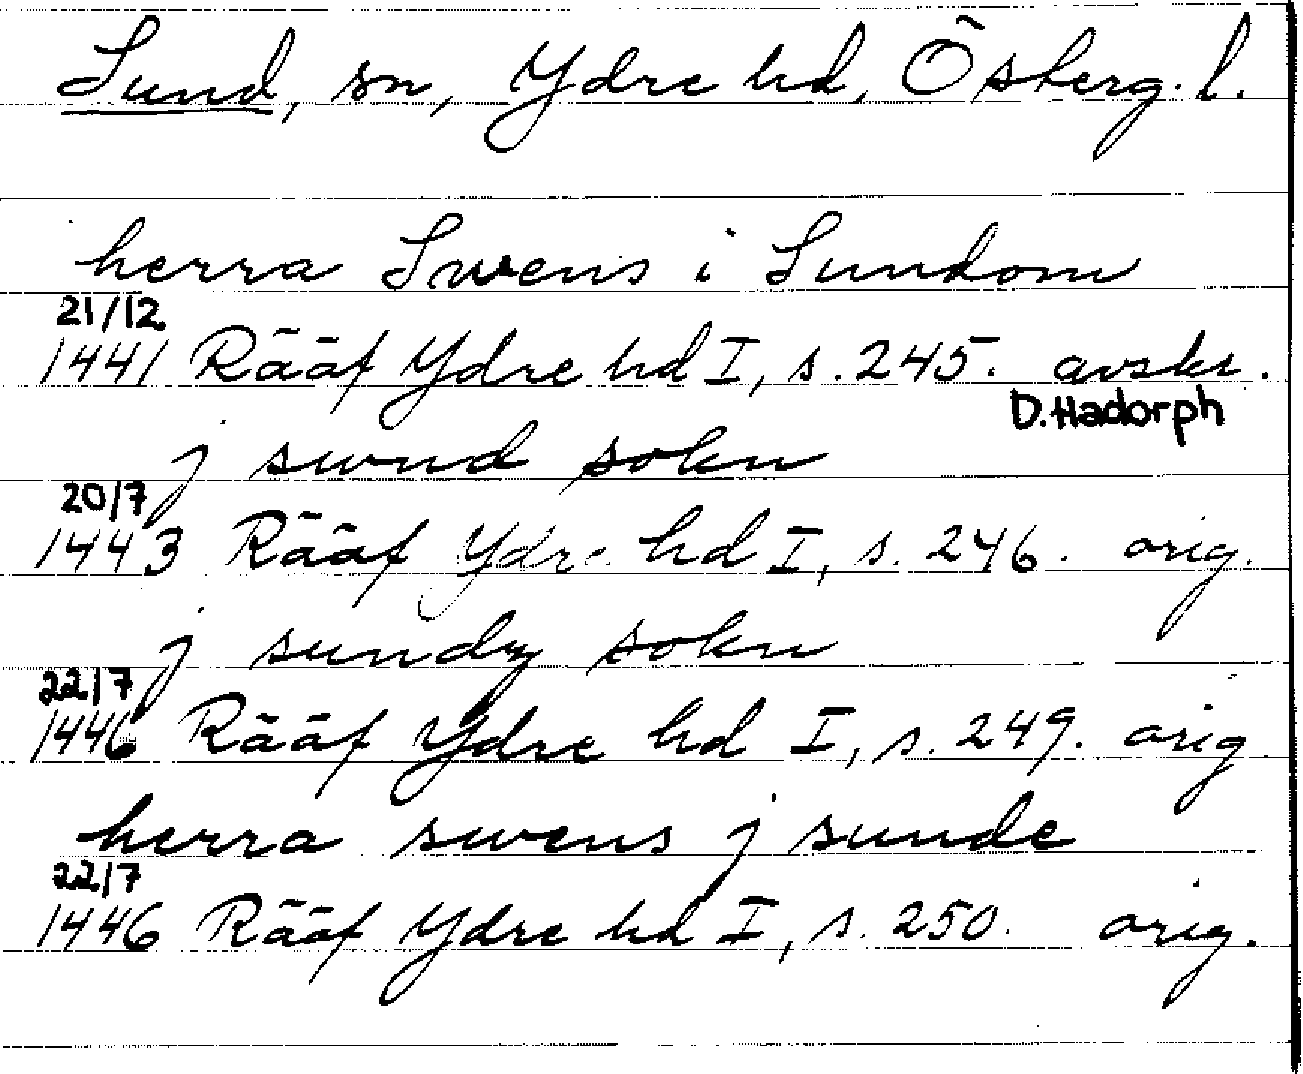 Sund, sn, Ydre hd, Österg. l.
herra Swens i Sundom
21/12
1441 Rääf Ydre hd I, s. 245. avskr.
D. Hadorph
j swnd sokn
20/7
1443 Rääf Ydre hd I, s. 246. orig.
j sundz sokn
22/7
1446 Rääf Ydre hd I, s. 249. orig
herra swens j sunde
22/7
1446 Rääf Ydre hd I, s. 250. orig.